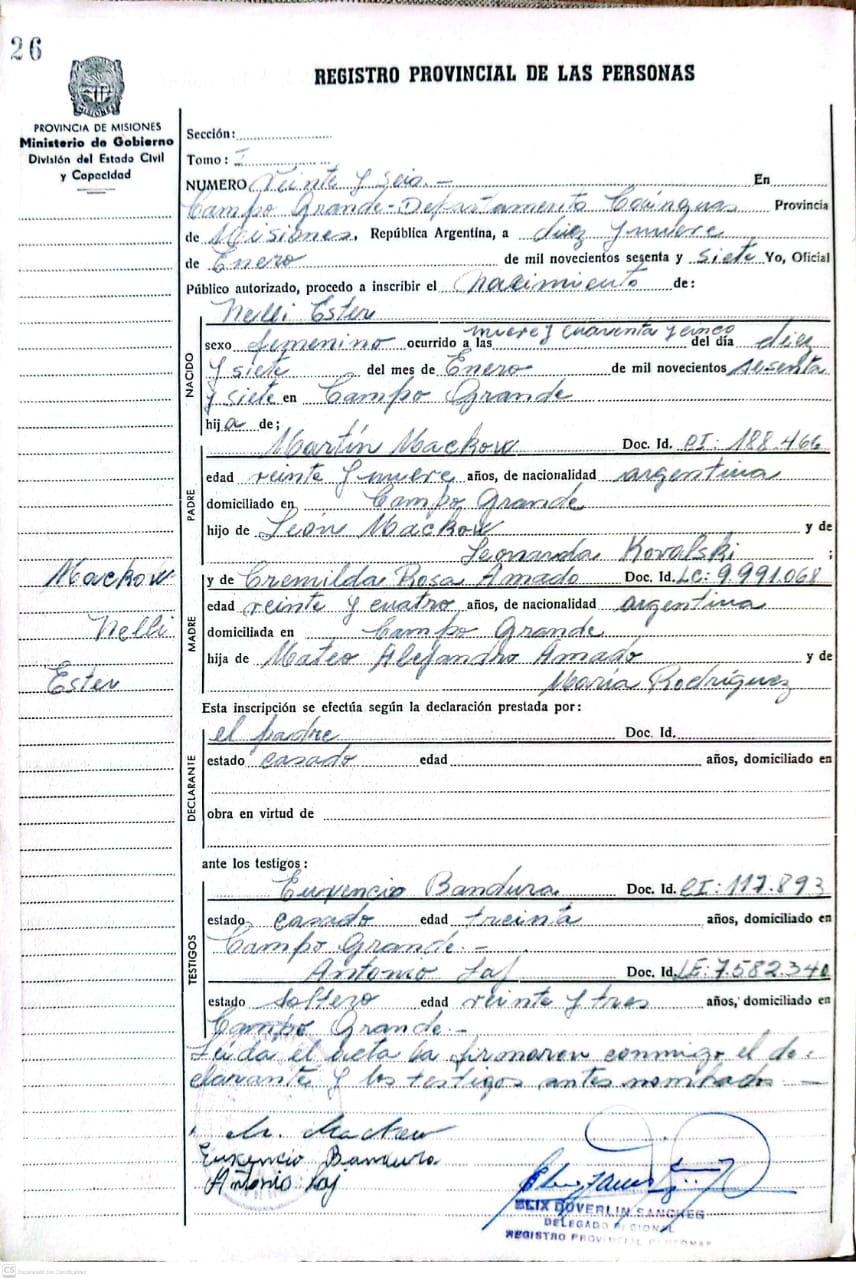 26
REGISTRO PROVINCIAL DE LAS PERSONAS
PROVINCIA DE MISIONES
Ministerio de Gobierno
División del Estado Civil
y Capacidad
Sección:
Tomo: I
NUMERO Veinte y seis.— En
Campo Grande-Departamento Cainguas Provincia
de Misiones, República Argentina, a diez y nueve
de Enero de mil novecientos sesenta y siete Yo, Oficial
Público autorizado, procedo a inscribir el nacimiento de:
NACIDO
Nelli Ester
sexo femenino ocurrido a las nueve y cuarenta y cinco del día diez
y siete del mes de Enero de mil novecientos sesenta
y siete en Campo Grande
hija de;
PADRE
Martín Mackow Doc. Id. CI: 188.466
edad veinte y nueve años, de nacionalidad argentina
domiciliado en Campo Grande
hijo de León Mackow y de
Leonarda Kovalski ;
Mackow
Nelli
Ester
MADRE
y de Cremilda Rosa Amado Doc. Id. LC: 9.991.068
edad veinte y cuatro años, de nacionalidad argentina
domiciliada en Campo Grande
hija de Mateo Alejandro Amado y de
María Rodríguez
Esta inscripción se efectúa según la declaración prestada por:
DECLARANTE
el padre Doc. Id.
estado casado edad años, domiciliado en
obra en virtud de
ante los testigos:
TESTIGOS
Euxencio Bandura Doc. Id. CI: 117.893
estado casado edad treinta años, domiciliado en
Campo Grande.—
Antonio Zaj Doc. Id. LE: 7.582.340
estado soltero edad veinte y tres años, domiciliado en
Campo Grande.—
Leída el acta la firmaron conmigo, el de-
clarante y los testigos antes nombrados.—
M. Mackow
Euxencio Bandura
Antonio Zaj
ELIX DOVERLIN SANCHES
DELEGADO REGIONAL
REGISTRO PROVINCIAL PERSONAS
CS Escaneado con CamScanner